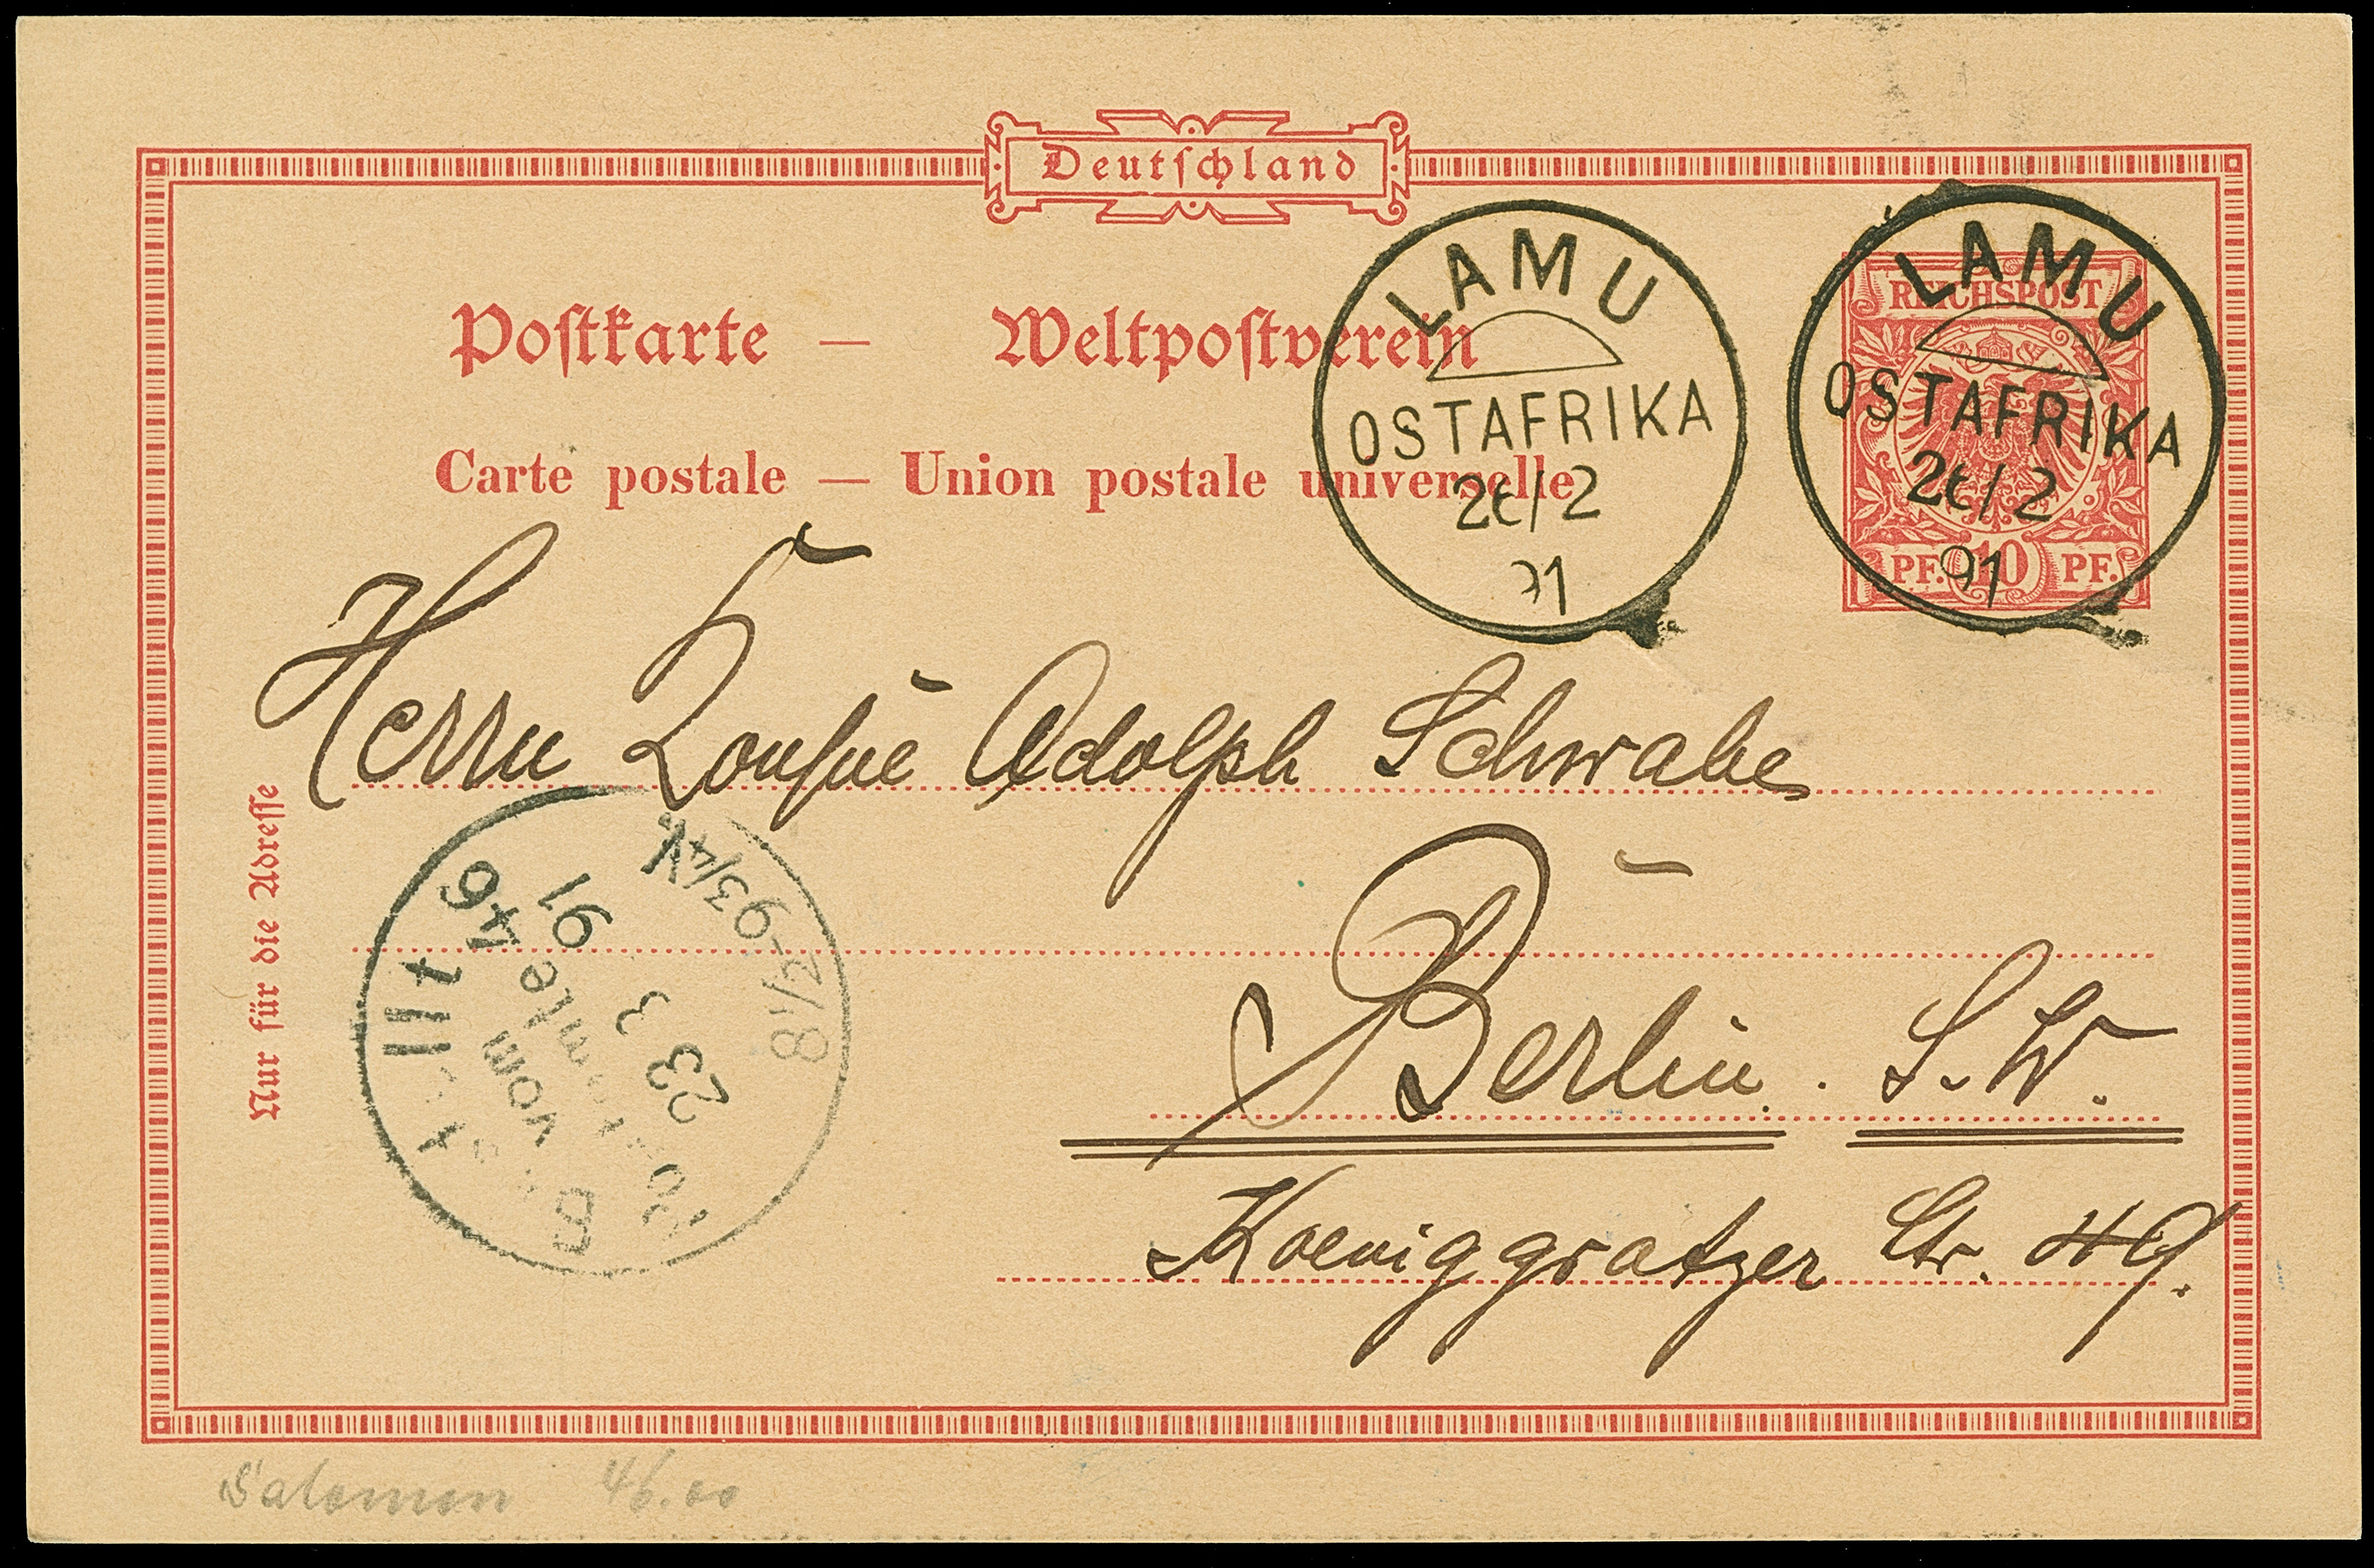 Deutschland
Postkarte — Weltpostverein
Carte postale — Union postale universelle
LAMU
OSTAFRIKA
26/2
91
REICHSPOST
PF. 10 PF.
LAMU
OSTAFRIKA
26/2
91
Herrn Adolph Schwabe
Berlin. S.W.
Koeniggratzer Str. 49.
Nur für die Adresse
Bestellt
vom
Postamte 46
23 3 91
8½-9¾V
46.00